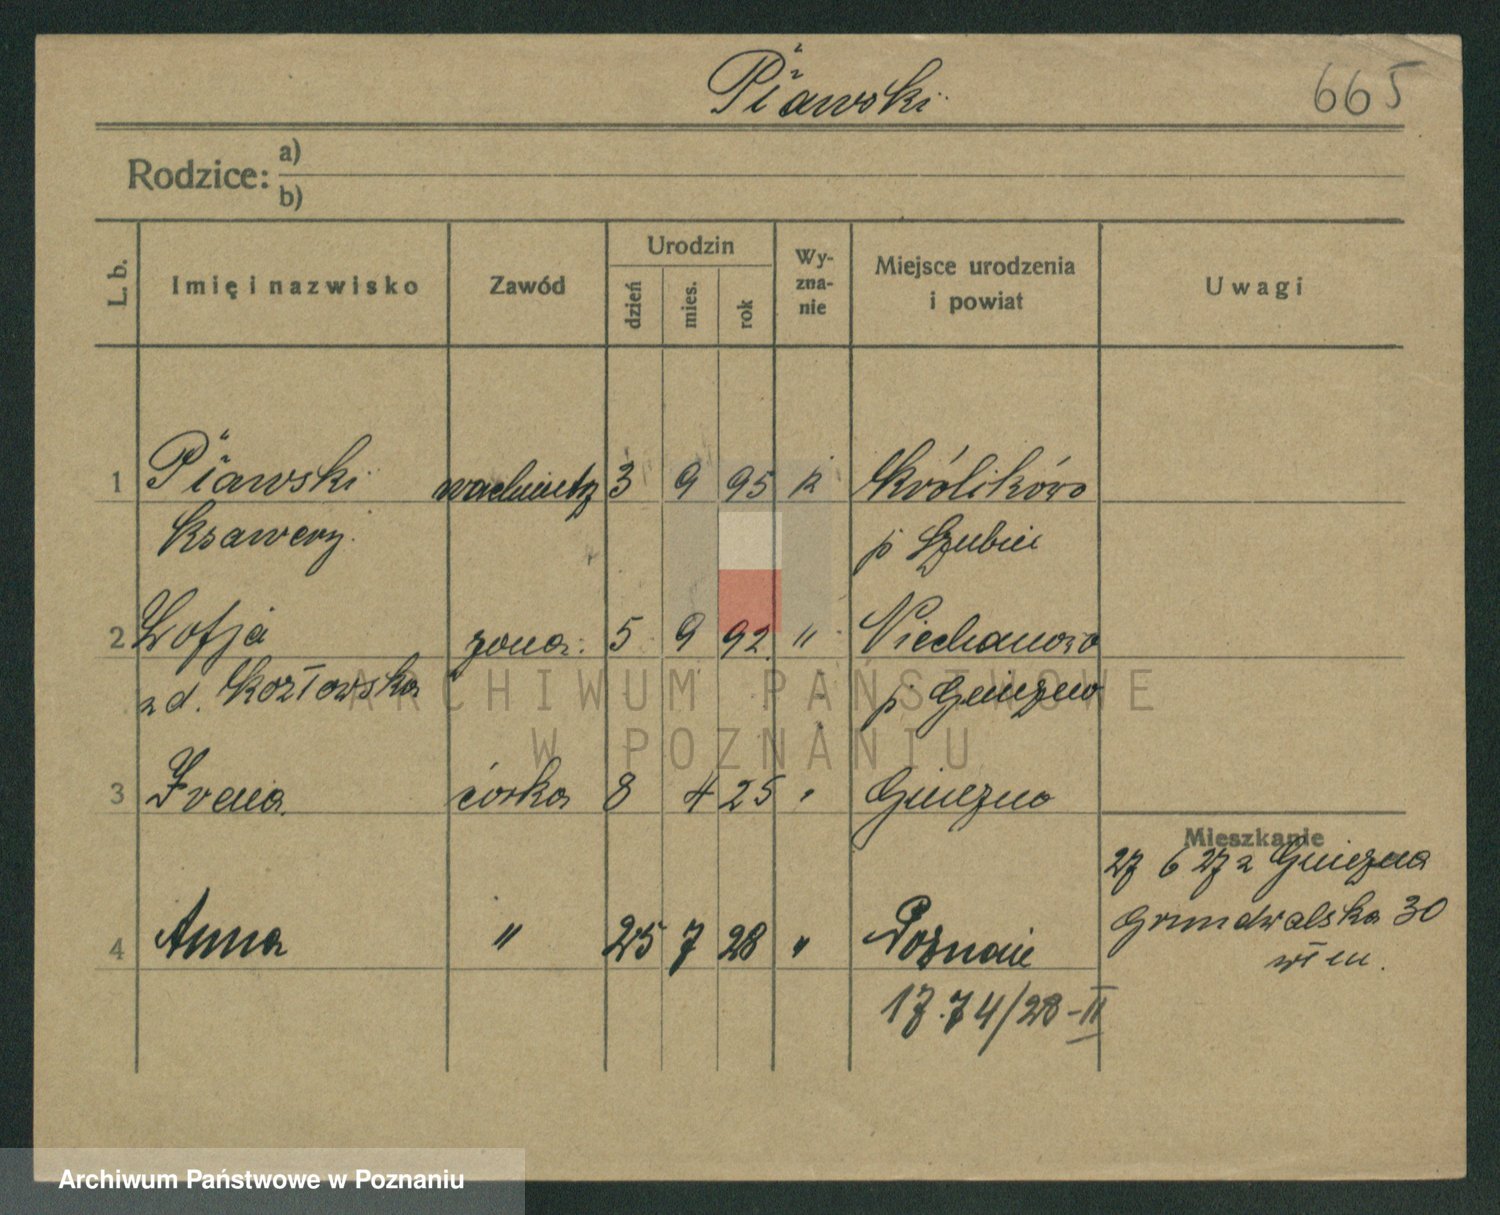 Piawski
665
Rodzice: a)
b)
L. b. Imię i nazwisko Zawód Urodzin dzień mies. rok Wy-zna-nie Miejsce urodzenia i powiat Uwagi
1 Piawski wachmistrz 3 9 95 k Królikowo
Ksawery. p Szubin
2 Zofja żona. 5 9 92 " Niechanowo
z d. Kozłowska p Gniezno
3 Irena córka 8 4 25 " Gniezno
Mieszkanie
27 6 27 z Gniezna
4 Anna " 25 7 28 " Poznań
Grundwalska 30
17.74/28-II
ARCHIWUM PAŃSTWOWE
W POZNANIU
Archiwum Państwowe w Poznaniu